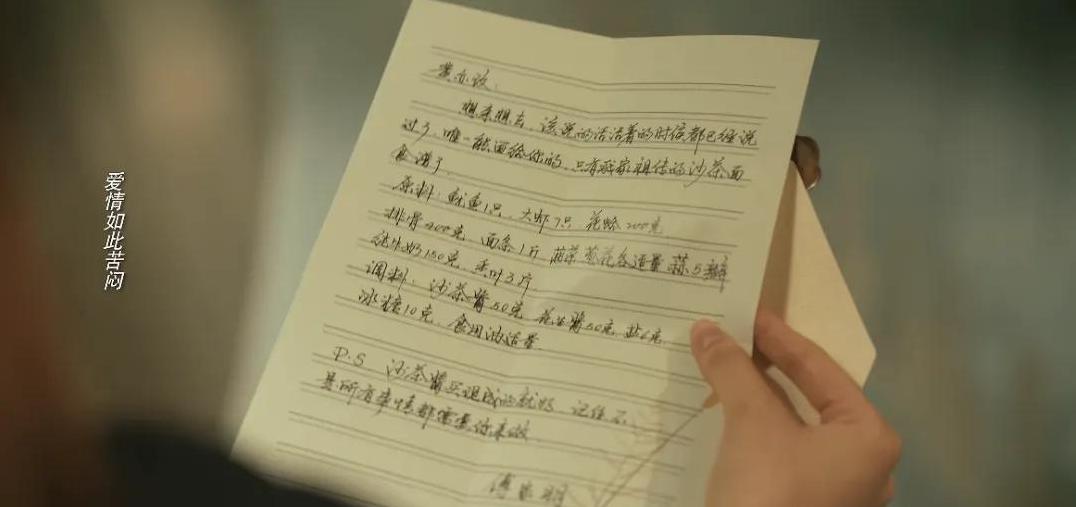 爱情如此苦闷
黄亦玫
想来想去，该说的话活着的时候都已经说
过了，唯一能留给你的，只有我家祖传的沙茶面
食谱了
原料：鱿鱼1只、大虾7只 花蛤200克
排骨200克、面条1斤 蔬菜葱花各适量 蒜5瓣
纯牛奶150克，香叶3片
调料：沙茶酱50克 花生酱50克 盐6克
冰糖10克、食用油适量
P.S 沙茶酱买现成的就好 记住不
是所有事情都需要你来做
傅家明